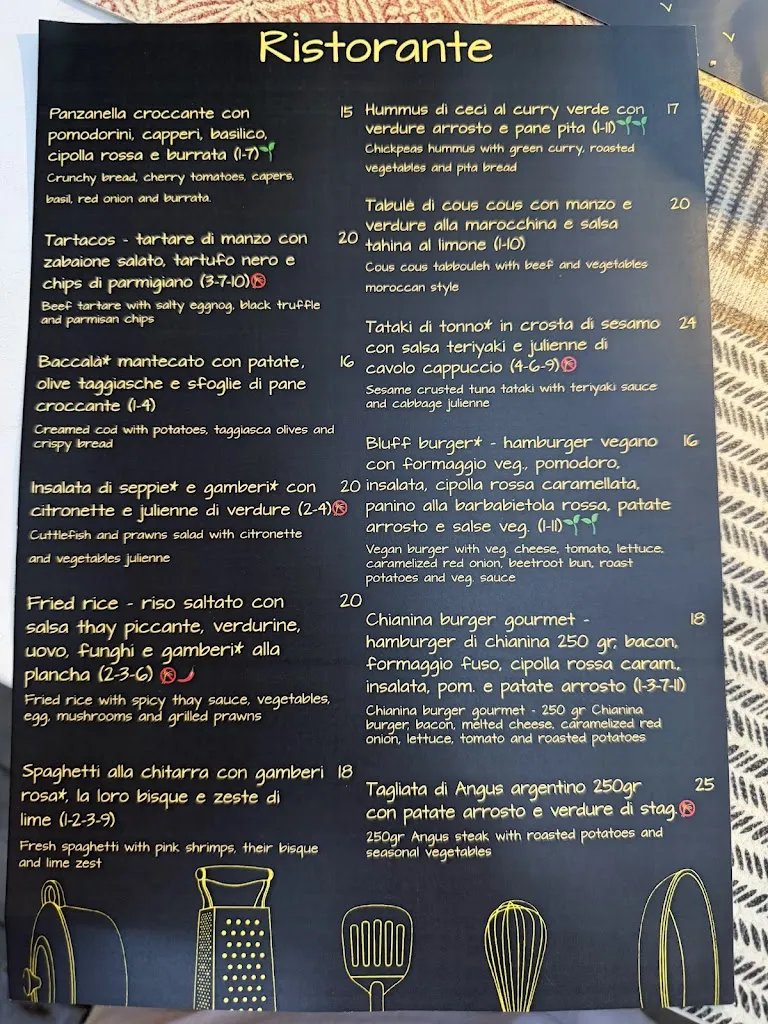 Ristorante
Panzanella croccante con 15
pomodorini, capperi, basilico,
cipolla rossa e burrata (1-7)
Crunchy bread, cherry tomatoes, capers,
basil, red onion and burrata.
Tartacos - tartare di manzo con 20
zabaione salato, tartufo nero e
chips di parmigiano (3-7-10)
Beef tartare with salty eggnog, black truffle
and parmisan chips
Baccalà* mantecato con patate, 16
olive taggiasche e sfoglie di pane
croccante (1-4)
Creamed cod with potatoes, taggiasca olives and
crispy bread
Insalata di seppie* e gamberi* con 20
citronette e julienne di verdure (2-4)
Cuttlefish and prawns salad with citronette
and vegetables julienne
Fried rice - riso saltato con 20
salsa thay piccante, verdurine,
uovo, funghi e gamberi* alla
plancha (2-3-6)
Fried rice with spicy thay sauce, vegetables,
egg, mushrooms and grilled prawns
Spaghetti alla chitarra con gamberi 18
rosa*, la loro bisque e zeste di
lime (1-2-3-9)
Fresh spaghetti with pink shrimps, their bisque
and lime zest
Hummus di ceci al curry verde con 17
verdure arrosto e pane pita (1-11)
Chickpeas hummus with green curry, roasted
vegetables and pita bread
Tabulè di cous cous con manzo e 20
verdure alla marocchina e salsa
tahina al limone (1-10)
Cous cous tabbouleh with beef and vegetables
moroccan style
Tataki di tonno* in crosta di sesamo 24
con salsa teriyaki e julienne di
cavolo cappuccio (4-6-9)
Sesame crusted tuna tataki with teriyaki sauce
and cabbage julienne
Bluff burger* - hamburger vegano 16
con formaggio veg., pomodoro,
insalata, cipolla rossa caramellata,
panino alla barbabietola rossa, patate
arrosto e salse veg. (1-11)
Vegan burger with veg. cheese, tomato, lettuce,
caramelized red onion, beetroot bun, roast
potatoes and veg. sauce
Chianina burger gourmet - 18
hamburger di chianina 250 gr, bacon,
formaggio fuso, cipolla rossa caram.,
insalata, pom. e patate arrosto (1-3-7-11)
Chianina burger gourmet - 250 gr Chianina
burger, bacon, melted cheese, caramelized red
onion, lettuce, tomato and roasted potatoes
Tagliata di Angus argentino 250gr 25
con patate arrosto e verdure di stag.
250gr Angus steak with roasted potatoes and
seasonal vegetables